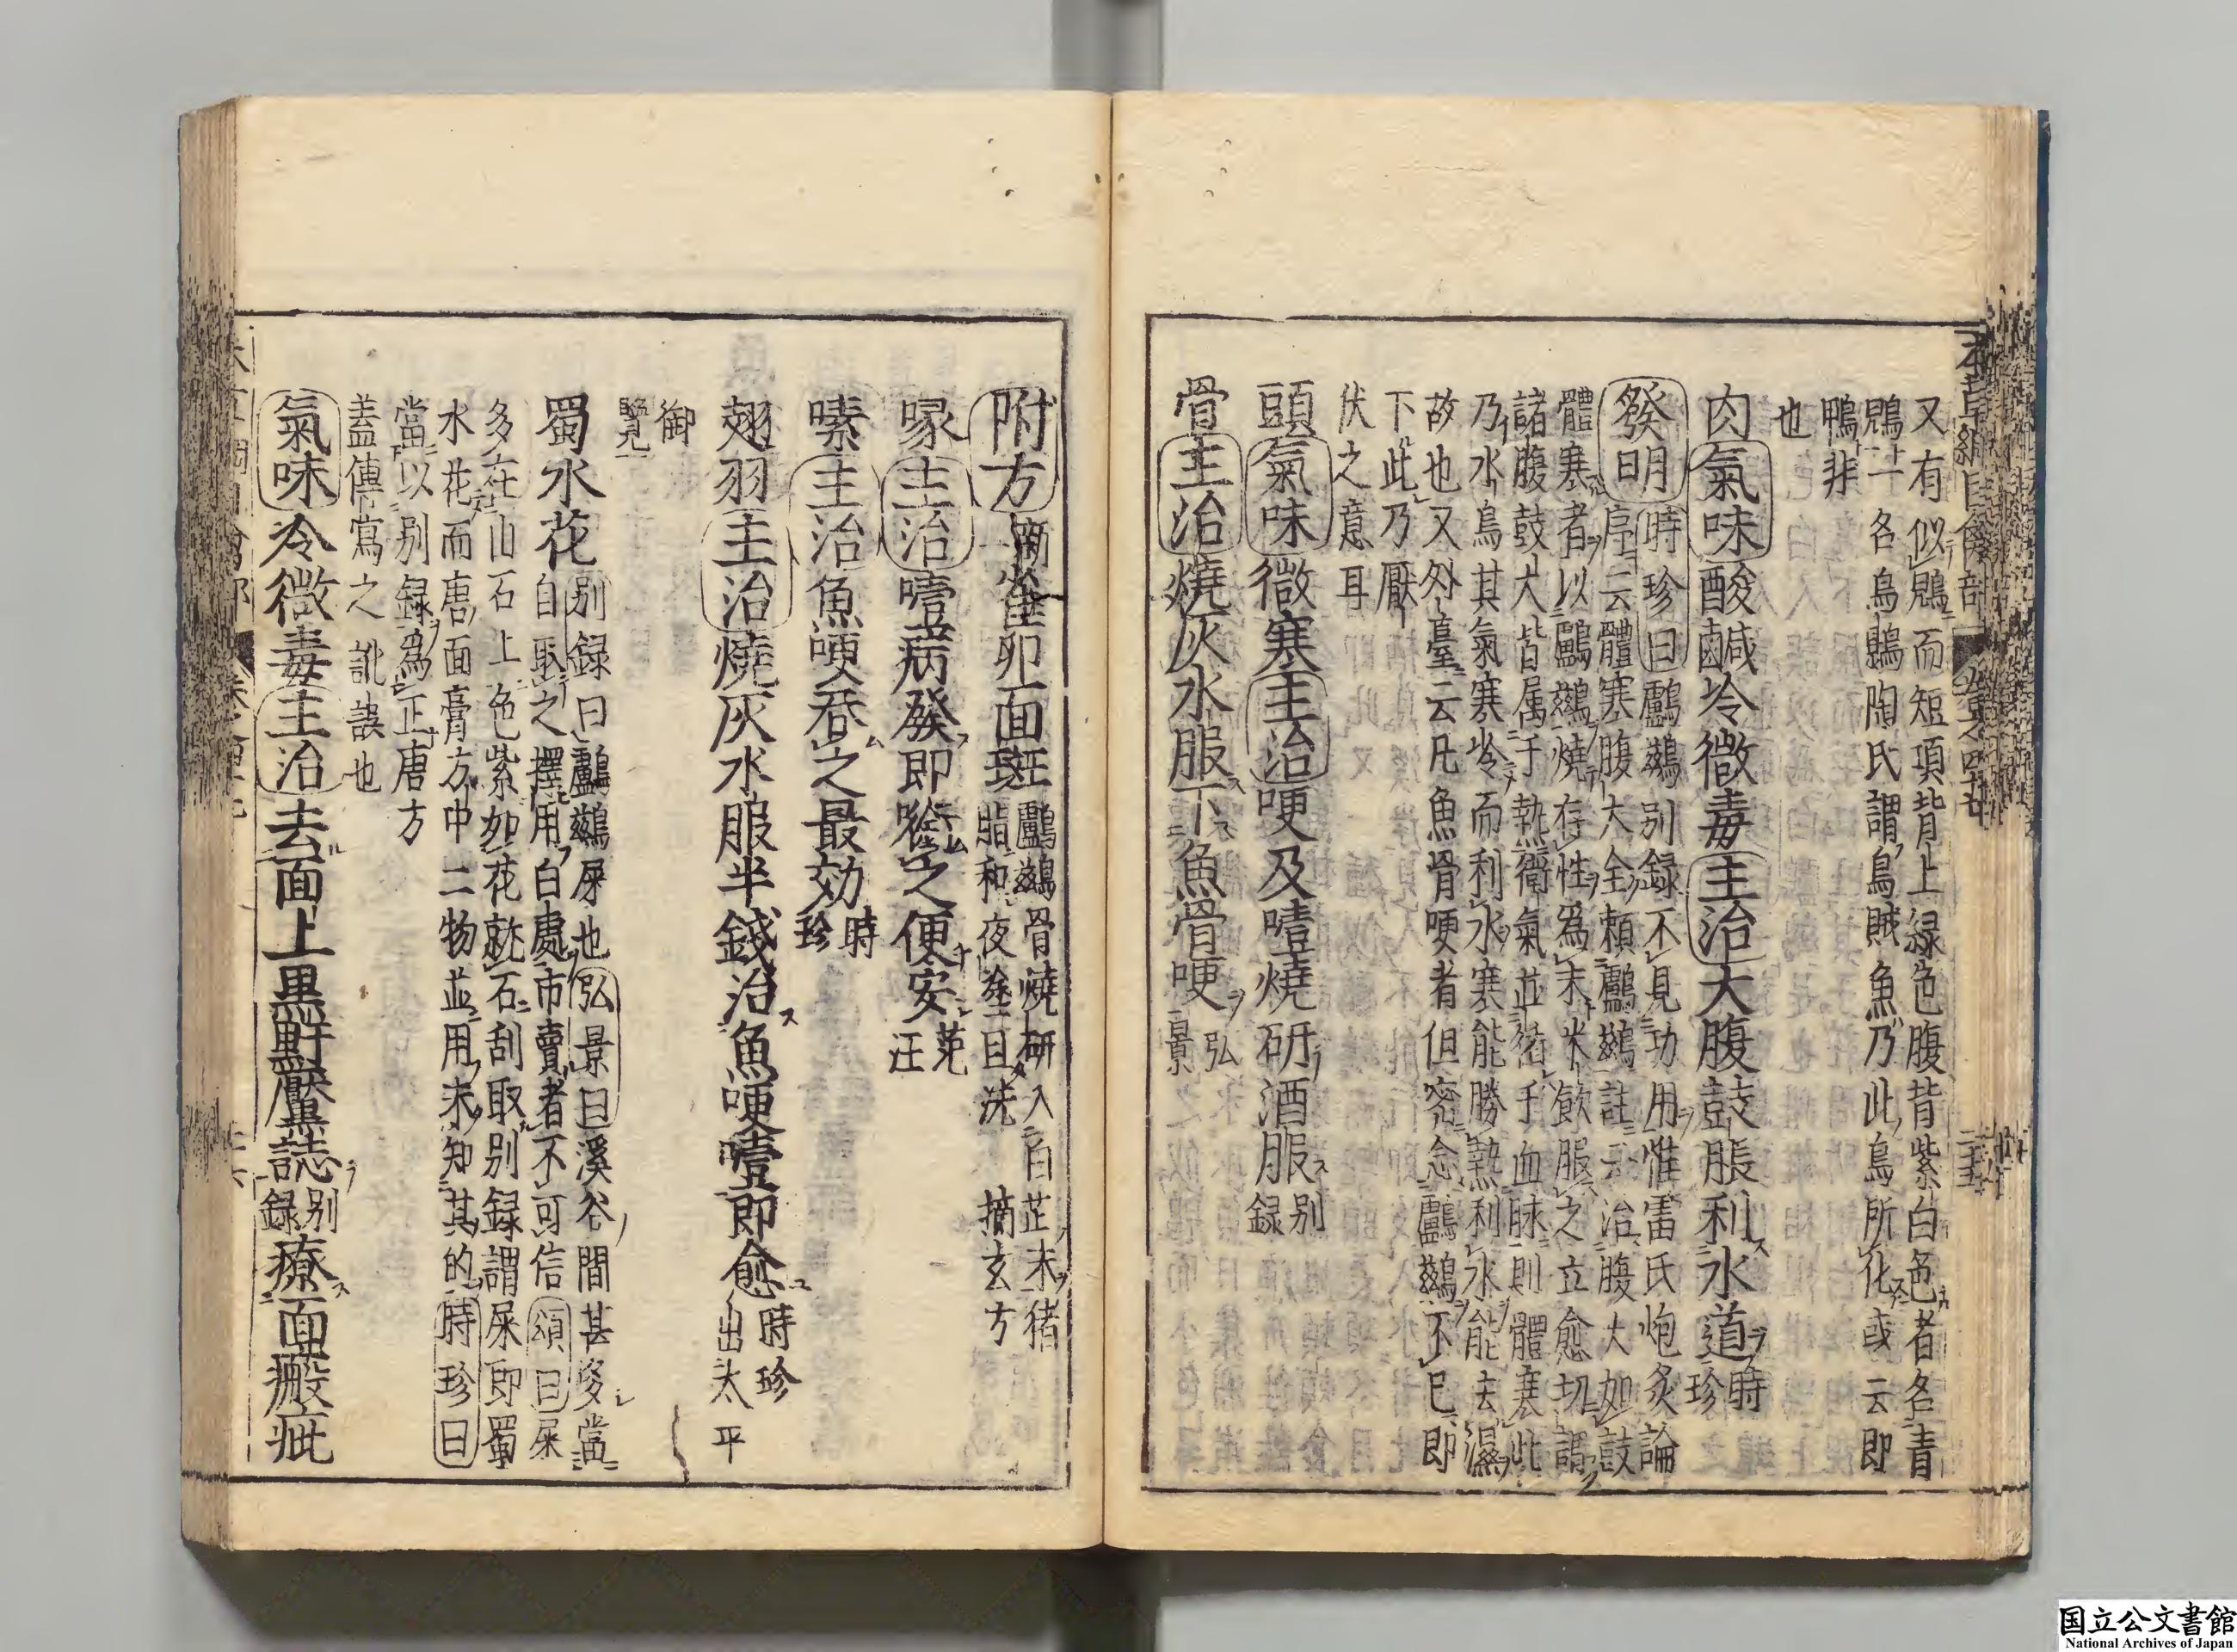 又有似鶂而短項背上緑色腹背紫白色者名青
鶂一名烏鷁陶氏謂烏賊魚乃此鳥所化或云即
鴨非
也
肉氣味酸鹹冷微毒主治大腹鼓脹利水道時珍
發明時珍曰鸕鷀别録不見功用惟雷氏炮炙論
序云體寒腹大全賴鸕鷀註云治腹大如鼓
體寒者以鸕鷀燒存性爲末米飲服之立愈切謂
諸腹鼓大皆属于熱衛氣並循于血脉則體寒此
乃水鳥其氣寒冷而利水寒能勝熱利水能去濕
故也又外臺云凡魚骨哽者但密念鸕鷀不已即
下此乃厭
伏之意耳
頭氣味微寒主治哽及噎燒研酒服别録
骨主治燒灰水服下魚骨哽弘景
附方
雀卵面斑鸕鷀骨燒研入白芷末猪
脂和夜塗旦洗 摘玄方
喙主治噎病發即啣之便安范汪
嗉主治魚哽吞之最効時珍
翅羽主治燒灰水服半錢治魚哽噎即愈時珍出太平
御
覽
蜀水花别録曰鸕鷀屎也弘景曰溪谷間甚多當
自取之擇用白處市賣者不可信頌曰屎
多在山石上色紫如花就石刮取别録謂屎即蜀
水花而唐面膏方中二物並用未知其的時珍曰
當以别録爲正唐方
蓋傳寫之訛誤也
氣味冷微毒主治去面上黑䵟黶誌别録療面瘢疵
国立公文書館
National Archives of Japan